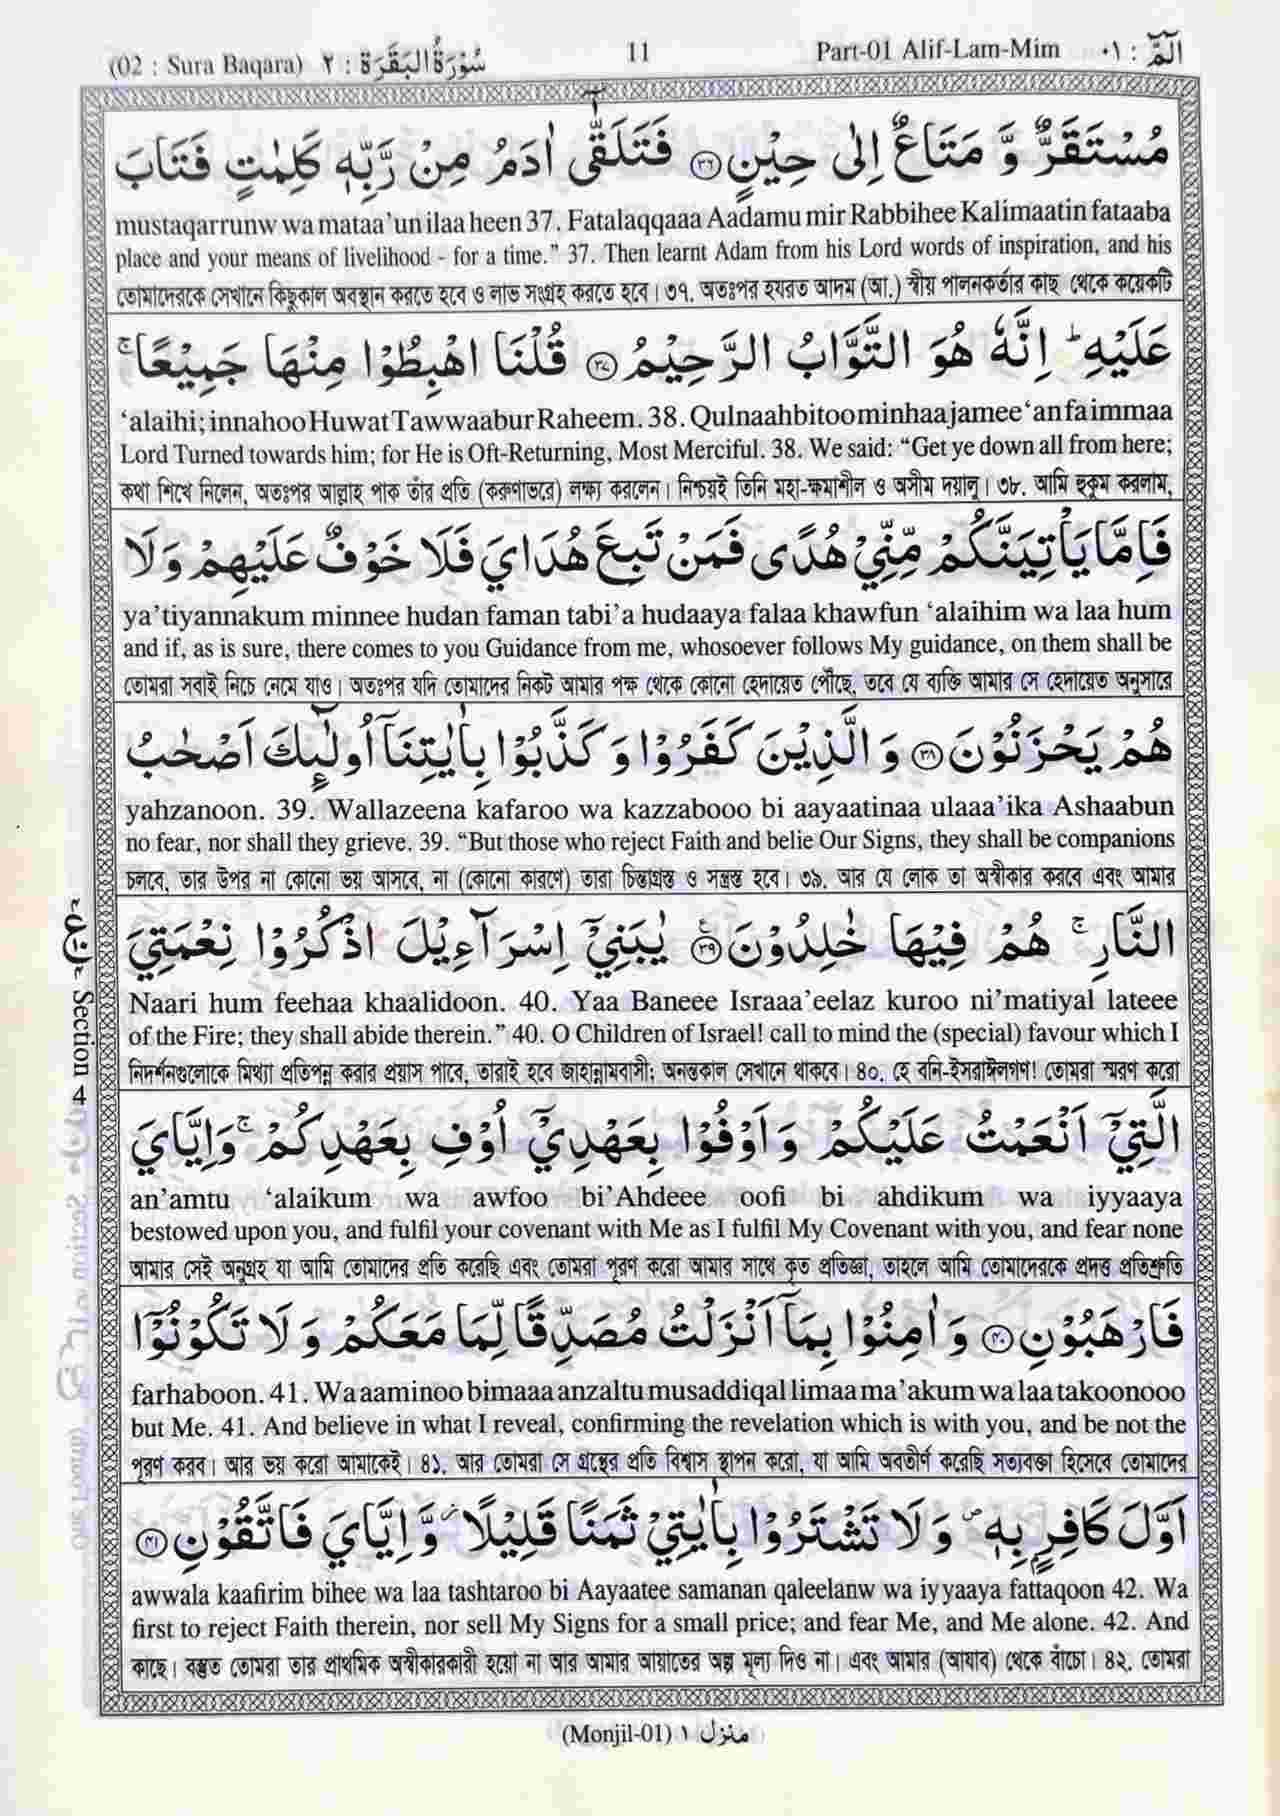 (02 : Sura Baqara) سُوْرَةُ الْبَقَرَة : ٢
11
Part-01 Alif-Lam-Mim الٓمّٓ : ٠١
مُسْتَقَرٌّ وَّ مَتَاعٌ اِلٰى حِيْنٍ ﴿٣٦﴾ فَتَلَقّٰٓى اٰدَمُ مِنْ رَّبِّهٖ كَلِمٰتٍ فَتَابَ
mustaqarrunw wa mataa’un ilaa heen 37. Fatalaqqaaa Aadamu mir Rabbihee Kalimaatin fataaba
place and your means of livelihood - for a time.” 37. Then learnt Adam from his Lord words of inspiration, and his
তোমাদেরকে সেখানে কিছুকাল অবস্থান করতে হবে ও লাভ সংগ্রহ করতে হবে। ৩৭. অতঃপর হযরত আদম (আ.) স্বীয় পালনকর্তার কাছ থেকে কয়েকটি
عَلَيْهِ ؕ اِنَّهٗ هُوَ التَّوَّابُ الرَّحِيْمُ ﴿٣٧﴾ قُلْنَا اهْبِطُوْا مِنْهَا جَمِيْعًا ۚ
‘alaihi; innahoo Huwat Tawwaabur Raheem. 38. Qulnaahbitoo minhaa jamee‘an fa immaa
Lord Turned towards him; for He is Oft-Returning, Most Merciful. 38. We said: “Get ye down all from here;
কথা শিখে নিলেন, অতঃপর আল্লাহ পাক তাঁর প্রতি (করুণাভরে) লক্ষ্য করলেন। নিশ্চয়ই তিনি মহা-ক্ষমাশীল ও অসীম দয়ালু। ৩৮. আমি হুকুম করলাম,
فَاِمَّا يَاْتِيَنَّكُمْ مِّنِّيْ هُدًى فَمَنْ تَبِعَ هُدَايَ فَلَا خَوْفٌ عَلَيْهِمْ وَلَا
ya’tiyannakum minnee hudan faman tabi’a hudaaya falaa khawfun ‘alaihim wa laa hum
and if, as is sure, there comes to you Guidance from me, whosoever follows My guidance, on them shall be
তোমরা সবাই নিচে নেমে যাও। অতঃপর যদি তোমাদের নিকট আমার পক্ষ থেকে কোনো হেদায়েত পৌঁছে, তবে যে ব্যক্তি আমার সে হেদায়েত অনুসারে
هُمْ يَحْزَنُوْنَ ﴿٣٨﴾ وَالَّذِيْنَ كَفَرُوْا وَكَذَّبُوْا بِاٰيٰتِنَآ اُولٰٓئِكَ اَصْحٰبُ
yahzanoon. 39. Wallazeena kafaroo wa kazzabooo bi aayaatinaa ulaaa’ika Ashaabun
no fear, nor shall they grieve. 39. “But those who reject Faith and belie Our Signs, they shall be companions
চলবে, তার উপর না কোনো ভয় আসবে, না (কোনো কারণে) তারা চিন্তাগ্রস্ত ও সন্ত্রস্ত হবে। ৩৯. আর যে লোক তা অস্বীকার করবে এবং আমার
النَّارِ ۚ هُمْ فِيْهَا خٰلِدُوْنَ ﴿٣٩﴾ يٰبَنِيْٓ اِسْرَآءِيْلَ اذْكُرُوْا نِعْمَتِيَ
Naari hum feehaa khaalidoon. 40. Yaa Baneee Israaa’eelaz kuroo ni’matiyal lateee
of the Fire; they shall abide therein.” 40. O Children of Israel! call to mind the (special) favour which I
নিদর্শনগুলোকে মিথ্যা প্রতিপন্ন করার প্রয়াস পাবে, তারাই হবে জাহান্নামবাসী; অনন্তকাল সেখানে থাকবে। ৪০. হে বনি-ইসরাঈলগণ! তোমরা স্মরণ করো
ع
Section 4
الَّتِيْٓ اَنْعَمْتُ عَلَيْكُمْ وَاَوْفُوْا بِعَهْدِيْٓ اُوْفِ بِعَهْدِكُمْ ۚ وَاِيَّايَ
an’amtu ‘alaikum wa awfoo bi’Ahdeee oofi bi ahdikum wa iyyaaya
bestowed upon you, and fulfil your covenant with Me as I fulfil My Covenant with you, and fear none
আমার সেই অনুগ্রহ যা আমি তোমাদের প্রতি করেছি এবং তোমরা পূরণ করো আমার সাথে কৃত প্রতিজ্ঞা, তাহলে আমি তোমাদেরকে প্রদত্ত প্রতিশ্রুতি
فَارْهَبُوْنِ ﴿٤٠﴾ وَاٰمِنُوْا بِمَآ اَنْزَلْتُ مُصَدِّقًا لِّمَا مَعَكُمْ وَلَا تَكُوْنُوْٓا
farhaboon. 41. Wa aaminoo bimaaa anzaltu musaddiqal limaa ma’akum wa laa takoonooo
but Me. 41. And believe in what I reveal, confirming the revelation which is with you, and be not the
পূরণ করব। আর ভয় করো আমাকেই। ৪১. আর তোমরা সে গ্রন্থের প্রতি বিশ্বাস স্থাপন করো, যা আমি অবতীর্ণ করেছি সত্যবক্তা হিসেবে তোমাদের
اَوَّلَ كَافِرٍۭ بِهٖ ۪ وَلَا تَشْتَرُوْا بِاٰيٰتِيْ ثَمَنًا قَلِيْلًا ؗ وَّاِيَّايَ فَاتَّقُوْنِ ﴿٤١﴾
awwala kaafirim bihee wa laa tashtaroo bi Aayaatee samanan qaleelanw wa iyyaaya fattaqoon 42. Wa
first to reject Faith therein, nor sell My Signs for a small price; and fear Me, and Me alone. 42. And
কাছে। বস্তুত তোমরা তার প্রাথমিক অস্বীকারকারী হয়ো না আর আমার আয়াতের অল্প মূল্য দিও না। এবং আমার (আযাব) থেকে বাঁচো। ৪২. তোমরা
(Monjil-01) منزل ١